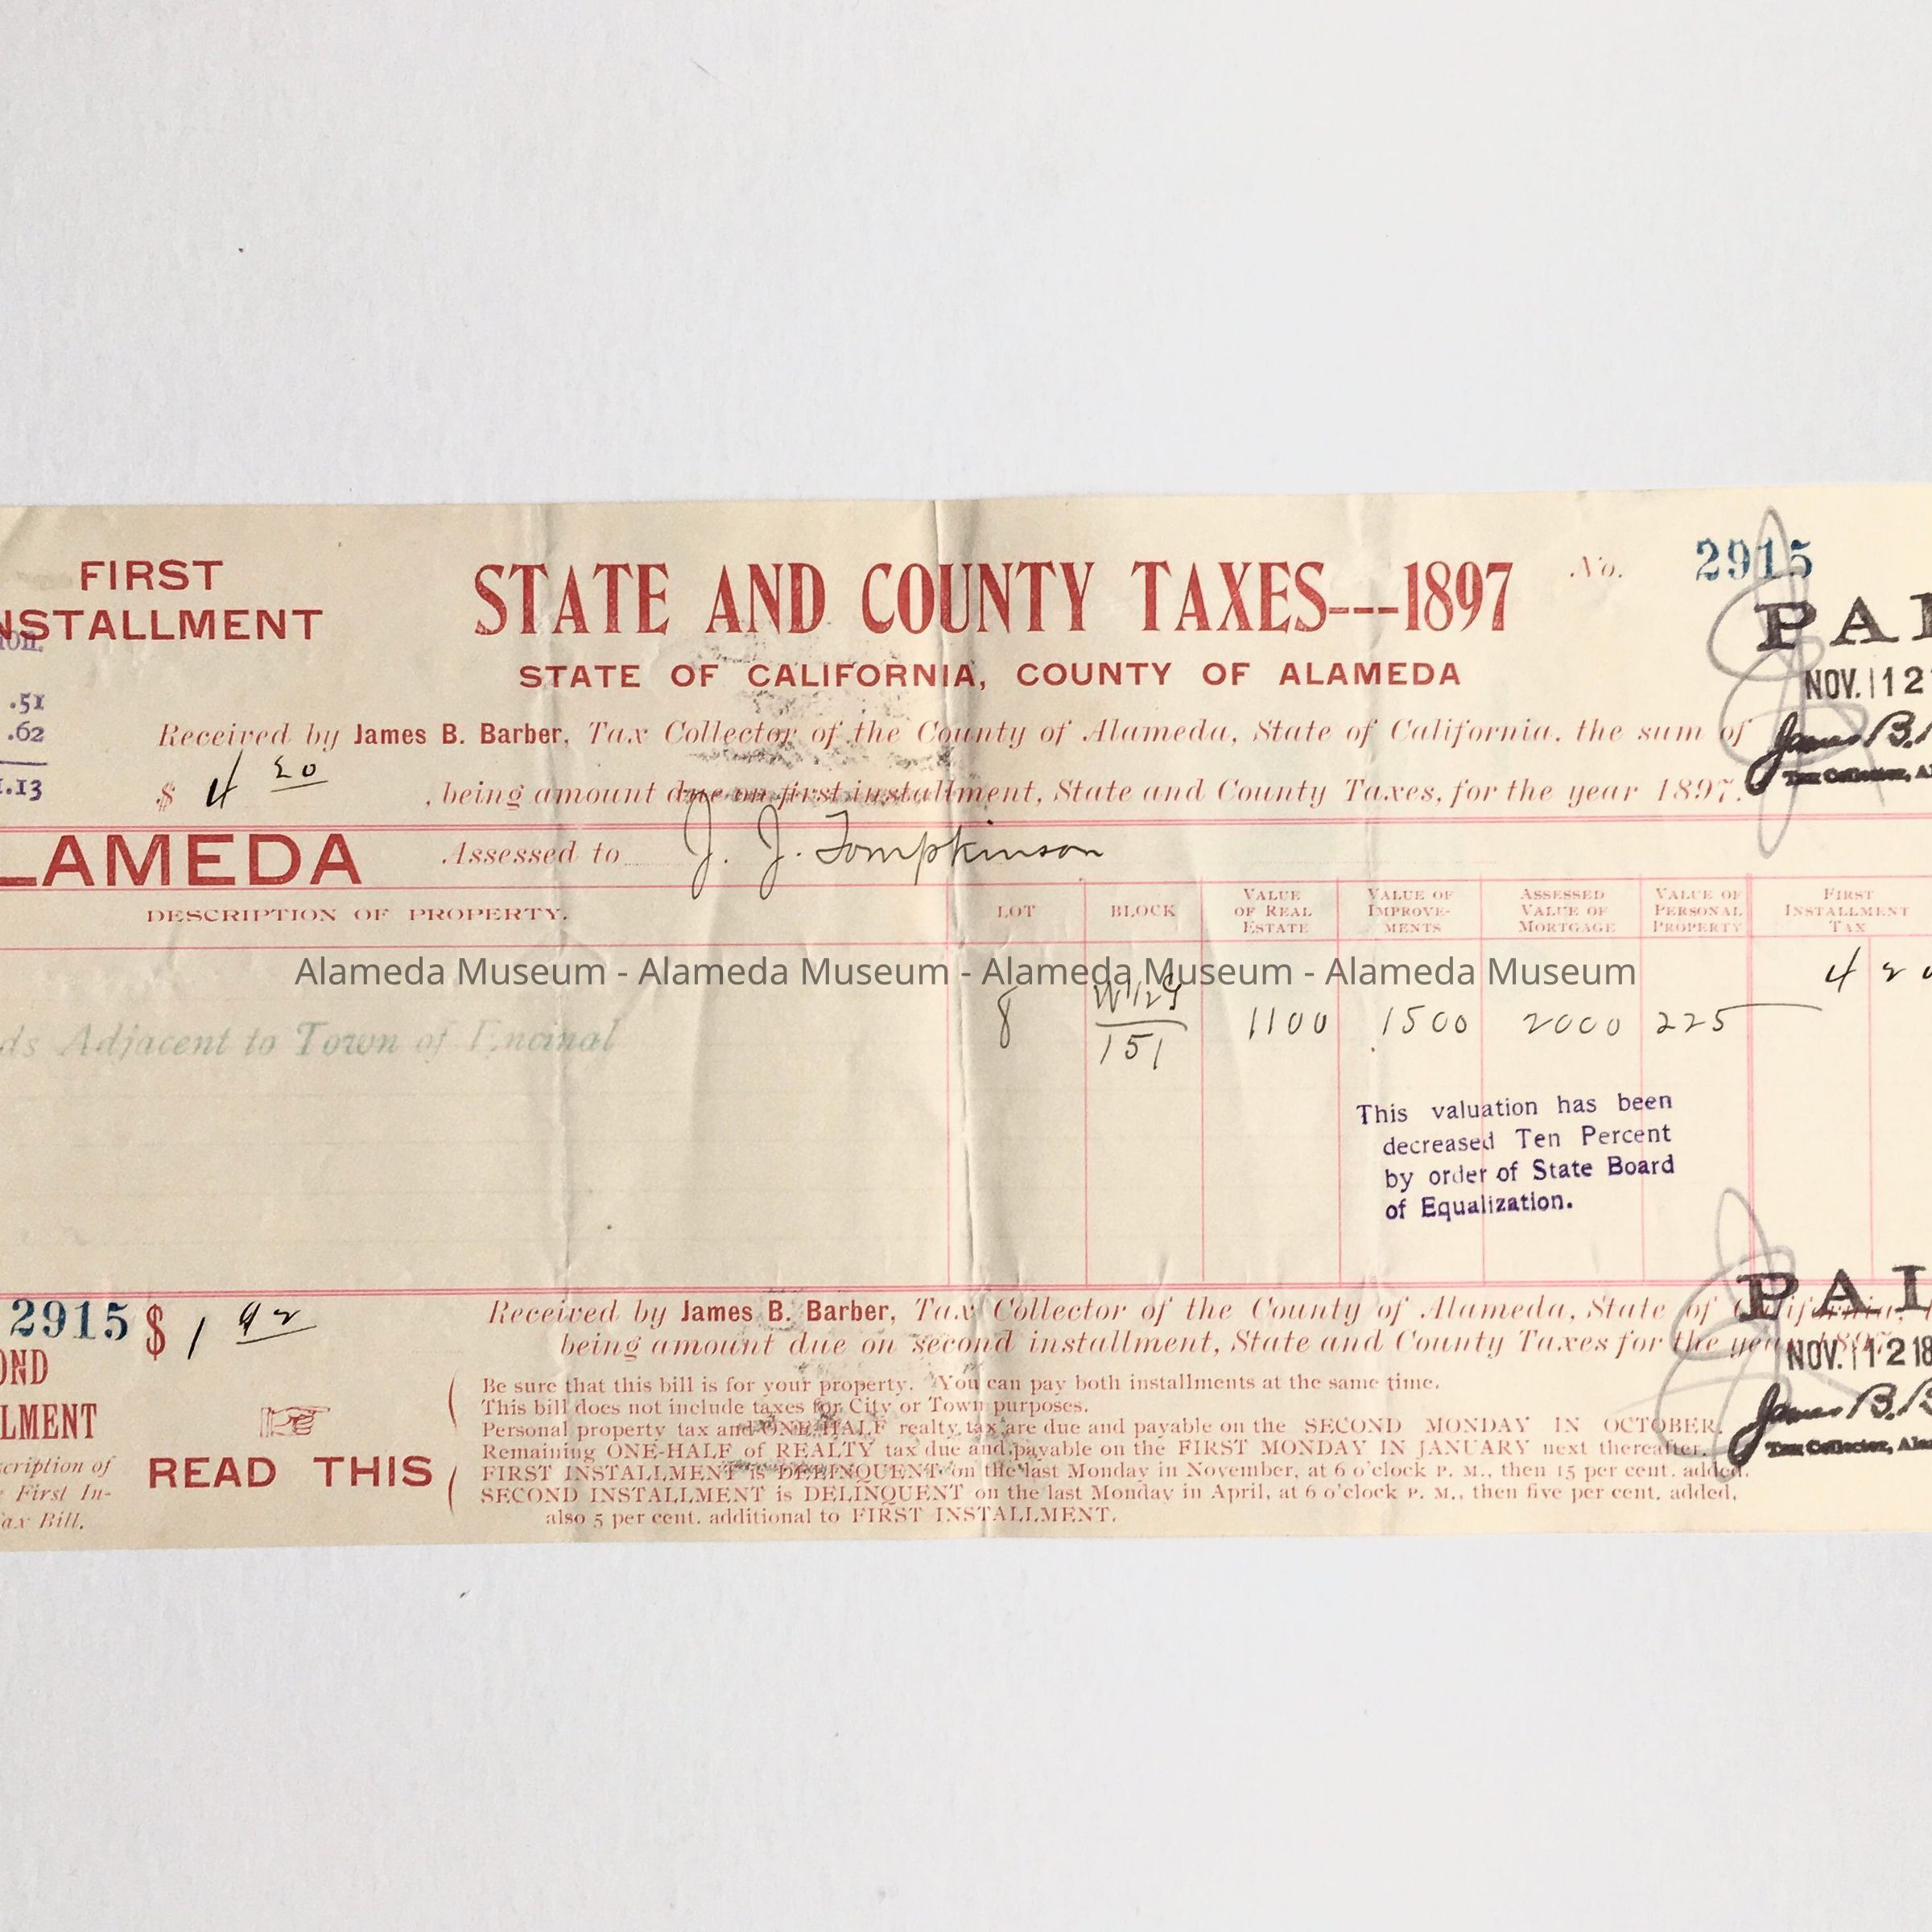 FIRST
NSTALLMENT
STATE AND COUNTY TAXES---1897
No. 2915
STATE OF CALIFORNIA, COUNTY OF ALAMEDA
PAI
NOV. 12
.51
.62
1.13
Received by James B. Barber, Tax Collector of the County of Alameda, State of California, the sum of
James B.
Tax Collector, Al
$ 4 20, being amount due on first installment, State and County Taxes, for the year 1897.
LAMEDA
Assessed to J. J. Tompkinson
DESCRIPTION OF PROPERTY.
LOT
BLOCK
VALUE OF REAL ESTATE
VALUE OF IMPROVE-MENTS
ASSESSED VALUE OF MORTGAGE
VALUE OF PERSONAL PROPERTY
FIRST INSTALLMENT TAX
Alameda Museum - Alameda Museum - Alameda Museum - Alameda Museum
4 2
ds Adjacent to Town of Encinal
8
151
1100 1500 2000 225
This valuation has been
decreased Ten Percent
by order of State Board
of Equalization.
2915 $ 1 92
Received by James B. Barber, Tax Collector of the County of Alameda, State of California,
being amount due on second installment, State and County Taxes for the year 1897
PAI
NOV. 12 18
James B. B
Tax Collector, Ala
OND
LLMENT
cription of
First In-
ax Bill.
READ THIS
Be sure that this bill is for your property. You can pay both installments at the same time.
This bill does not include taxes for City or Town purposes.
Personal property tax and ONE HALF realty tax are due and payable on the SECOND MONDAY IN OCTOBER.
Remaining ONE-HALF of REALTY tax due and payable on the FIRST MONDAY IN JANUARY next thereafter.
FIRST INSTALLMENT is DELINQUENT on the last Monday in November, at 6 o'clock P. M., then 15 per cent. added.
SECOND INSTALLMENT is DELINQUENT on the last Monday in April, at 6 o'clock P. M., then five per cent. added,
also 5 per cent. additional to FIRST INSTALLMENT.